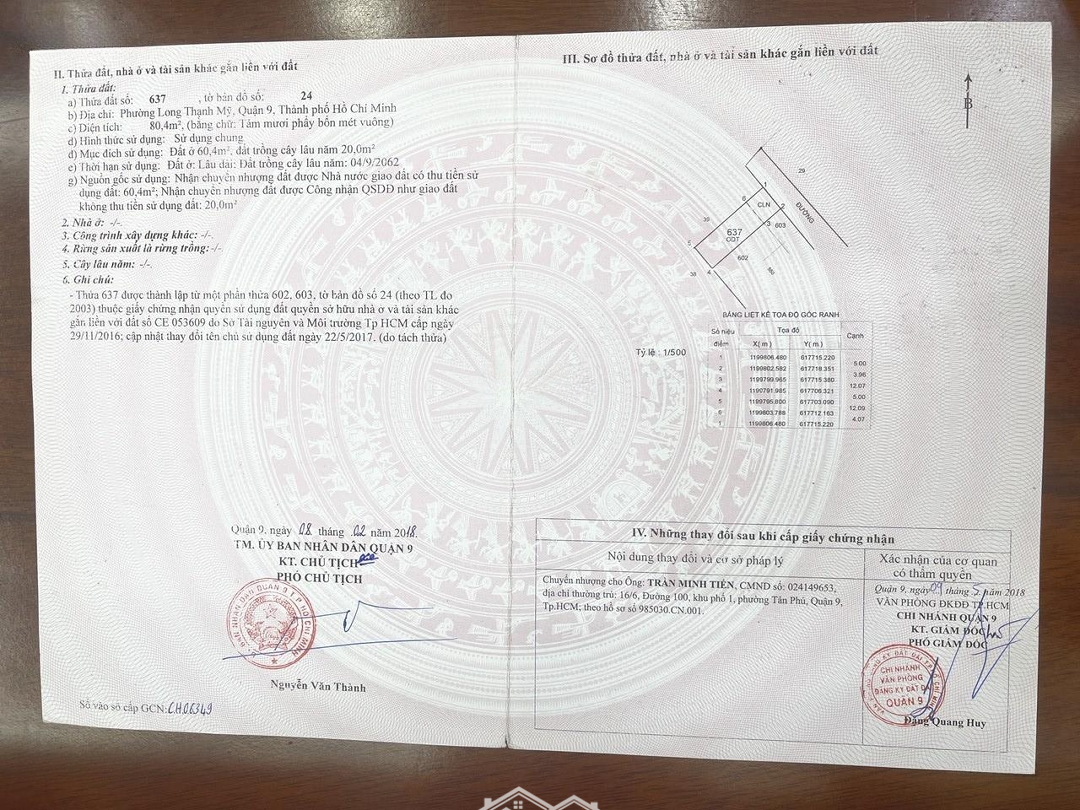 II. Thửa đất, nhà ở và tài sản khác gắn liền với đất
1. Thửa đất:
a) Thửa đất số: 637 , tờ bản đồ số: 24
b) Địa chỉ: Phường Long Thạnh Mỹ, Quận 9, Thành phố Hồ Chí Minh
c) Diện tích: 80,4m², (bằng chữ: Tám mươi phẩy bốn mét vuông)
d) Hình thức sử dụng: Sử dụng chung
đ) Mục đích sử dụng: Đất ở 60,4m², đất trồng cây lâu năm 20,0m²
e) Thời hạn sử dụng: Đất ở: Lâu dài: Đất trồng cây lâu năm: 04/9/2062
g) Nguồn gốc sử dụng: Nhận chuyển nhượng đất được Nhà nước giao đất có thu tiền sử
dụng đất: 60,4m²; Nhận chuyển nhượng đất được Công nhận QSDĐ như giao đất
không thu tiền sử dụng đất: 20,0m²
2. Nhà ở: -/-.
3. Công trình xây dựng khác: -/-.
4. Rừng sản xuất là rừng trồng: -/-.
5. Cây lâu năm: -/-.
6. Ghi chú:
- Thửa 637 được thành lập từ một phần thửa 602, 603, tờ bản đồ số 24 (theo TL đo
2003) thuộc giấy chứng nhận quyền sử dụng đất quyền sở hữu nhà và tài sản khác
gắn liền với đất số CE 053609 do Sở Tài nguyên và Môi trường Tp HCM cấp ngày
29/11/2016; cập nhật thay đổi tên chủ sử dụng đất ngày 22/5/2017. (do tách thửa)
Quận 9, ngày 08 tháng 02 năm 2018.
TM. ỦY BAN NHÂN DÂN QUẬN 9
KT. CHỦ TỊCH
PHÓ CHỦ TỊCH
Nguyễn Văn Thành
Số vào sổ cấp GCN: CH06349
III. Sơ đồ thửa đất, nhà ở và tài sản khác gắn liền với đất
B
29
ĐƯỜNG
1
6
CLN
2
35
637
3
603
ODT
5
602
38
4
BẢNG LIỆT KÊ TỌA ĐỘ GÓC RANH
Số hiệu điểm Tọa độ Cạnh
X( m ) Y( m )
Tỷ lệ : 1/500
1 1199806.480 617715.220
5.00
2 1199802.582 617718.351
3.96
3 1199799.965 617715.380
12.07
4 1199791.985 617706.321
5.00
5 1199795.800 617703.090
12.09
6 1199803.788 617712.163
4.07
1 1199806.480 617715.220
IV. Những thay đổi sau khi cấp giấy chứng nhận
Nội dung thay đổi và cơ sở pháp lý
Xác nhận của cơ quan
có thẩm quyền
Chuyển nhượng cho Ông: TRẦN MINH TIẾN, CMND số: 024149653,
địa chỉ thường trú: 16/6, Đường 100, khu phố 1, phường Tân Phú, Quận 9,
Tp.HCM; theo hồ sơ số 985030.CN.001.
Quận 9, ngày 09 tháng 5 năm 2018
VĂN PHÒNG ĐKĐĐ TP.HCM
CHI NHÁNH QUẬN 9
KT. GIÁM ĐỐC
PHÓ GIÁM ĐỐC
CHI NHÁNH
VĂN PHÒNG
ĐĂNG KÝ ĐẤT ĐAI
QUẬN 9
Đặng Quang Huy